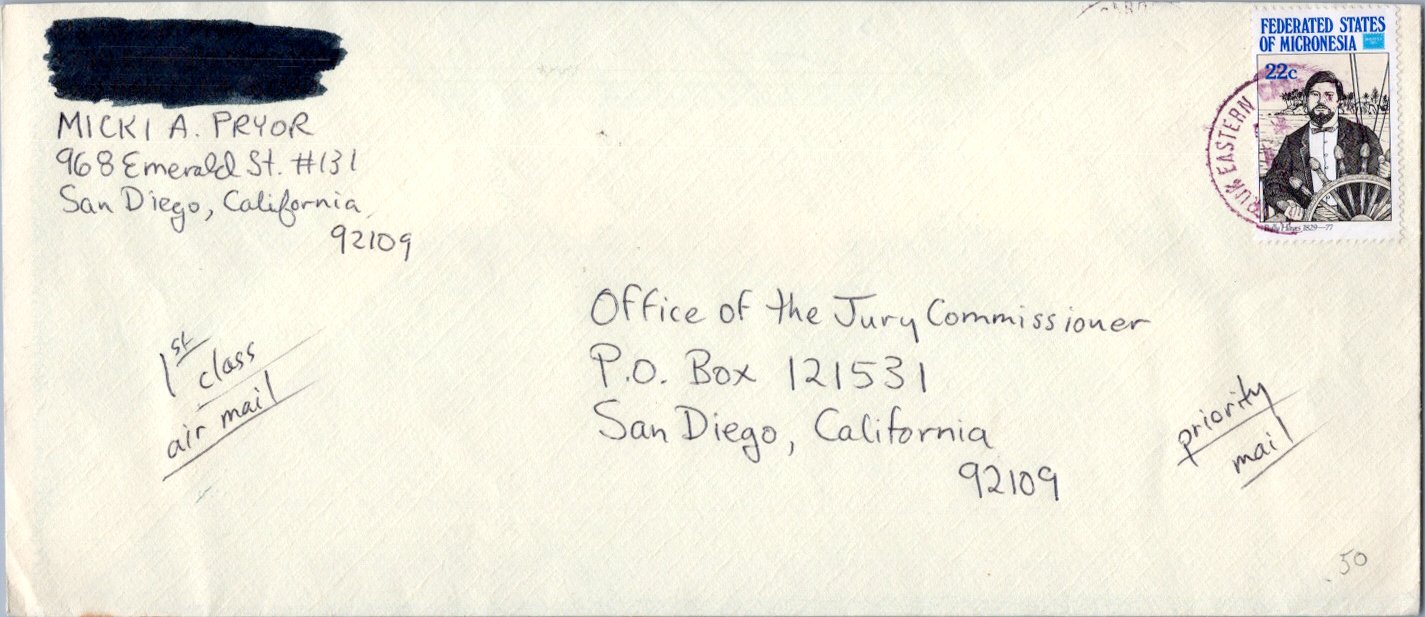 MICKI A. PRYOR
968 Emerald St. #131
San Diego, California
92109
FEDERATED STATES
OF MICRONESIA
22c
Bully Hayes 1829—77
TRUK EASTERN
1st
class
air mail
Office of the Jury Commissioner
P.O. Box 121531
San Diego, California
92109
priority
mail
.50